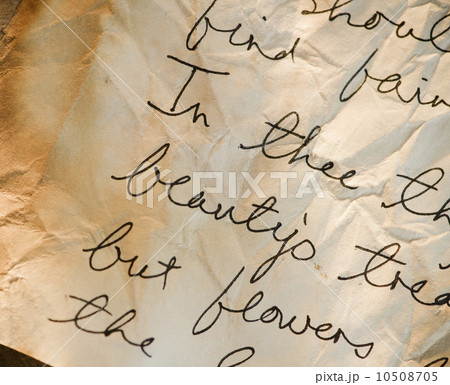 shoul
find fain
In thee th
beauty's trea
but flowers
the
PIXTA
pixta.jp - 10508705